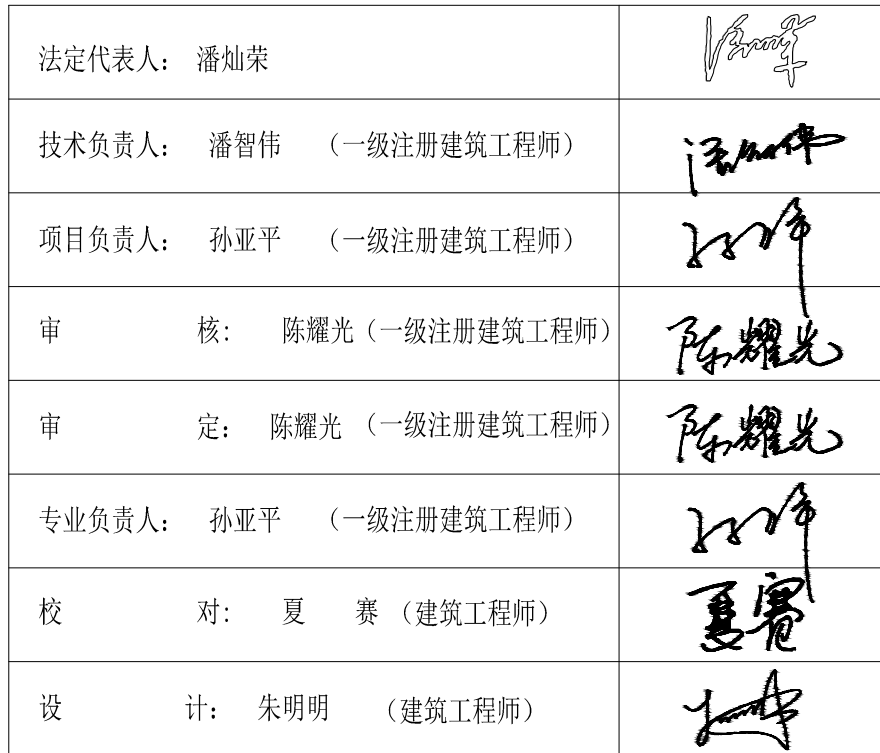 法定代表人： 潘灿荣
技术负责人： 潘智伟 （一级注册建筑工程师） 潘智伟
项目负责人： 孙亚平 （一级注册建筑工程师）
审 核： 陈耀光（一级注册建筑工程师） 陈耀光
审 定： 陈耀光 （一级注册建筑工程师） 陈耀光
专业负责人： 孙亚平 （一级注册建筑工程师）
校 对： 夏 赛 （建筑工程师） 夏赛
设 计： 朱明明 （建筑工程师）